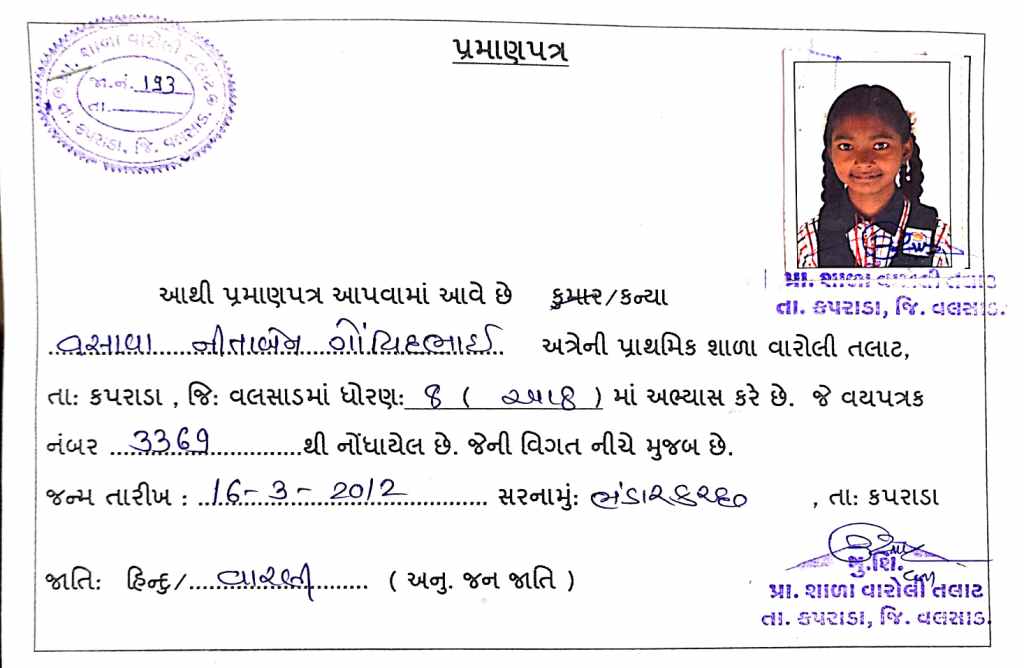 પ્રમાણપત્ર
પ્રા. શાળા વારોલી તલાટ
જા.નં. 193
તા.
તા. કપરાડા, જિ. વલસાડ.
પ્રા. શાળા વારોલી તલાટ
તા. કપરાડા, જિ. વલસાડ.
આથી પ્રમાણપત્ર આપવામાં આવે છે કુમાર/કન્યા
વસાવા નીતાબેન ગોવિંદભાઈ અત્રેની પ્રાથમિક શાળા વારોલી તલાટ,
તા: કપરાડા , જિ: વલસાડમાં ધોરણ: 8 ( આઠ ) માં અભ્યાસ કરે છે. જે વયપત્રક
નંબર ...3369...થી નોંધાયેલ છે. જેની વિગત નીચે મુજબ છે.
જન્મ તારીખ : 16-3-2012 સરનામું: , તા: કપરાડા
જાતિ: હિન્દુ/...વારલી... ( અનુ. જન જાતિ )
મુ.શિ.
પ્રા. શાળા વારોલી તલાટ
તા. કપરાડા, જિ. વલસાડ